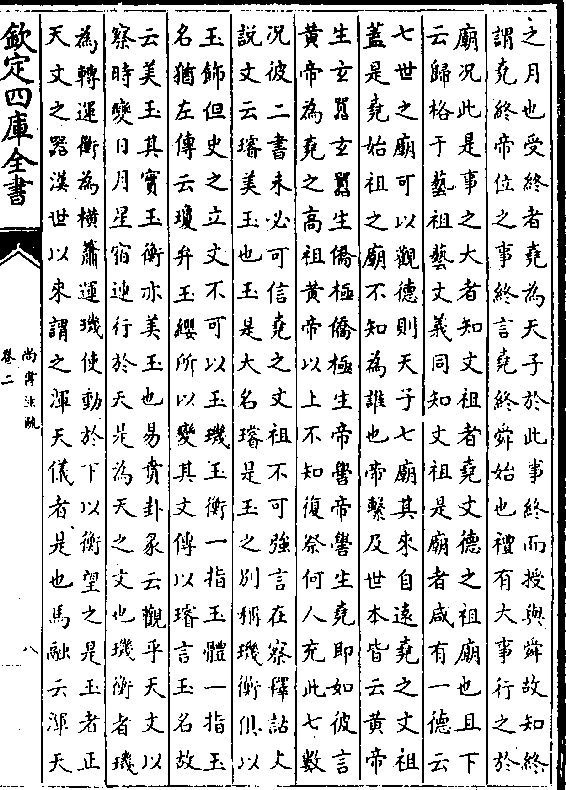 之月也受終者堯為天子於此事終而授與舜故知終
謂堯終帝位之事終言堯終舜始也禮有大事行之於
廟況此是事之大者知文祖者堯文德之祖廟也且下
云歸格于藝祖藝文義同知文祖是廟者咸有一德云
七世之廟可以觀德則天子七廟其來自遠堯之文祖
蓋是堯始祖之廟不知為誰也帝繫及世本皆云黄帝
生玄囂玄囂生僑極僑極生帝嚳帝嚳生堯即如彼言
黄帝為堯之高祖黄帝以上不知復祭何人充此七數
況彼二書未必可信堯之文祖不可強言在察釋詁文
説文云璿美玉也玉是大名璿是玉之别稱璣衡俱以
玉飾但史之立文不可以玉璣玉衡一指玉體一指玉
名猶左傳云瓊弁玉纓所以變其文傳以璿言玉名故
云美玉其實玉衡亦美玉也易賁卦彖云觀乎天文以
察時變日月星宿運行於天是為天之文也璣衡者璣
為轉運衡為橫簫運璣使動於下以衡望之是玉者正
天文之器漢世以來謂之渾天儀者是也馬融云渾天
欽定四庫全書
尚書注疏
卷二
八